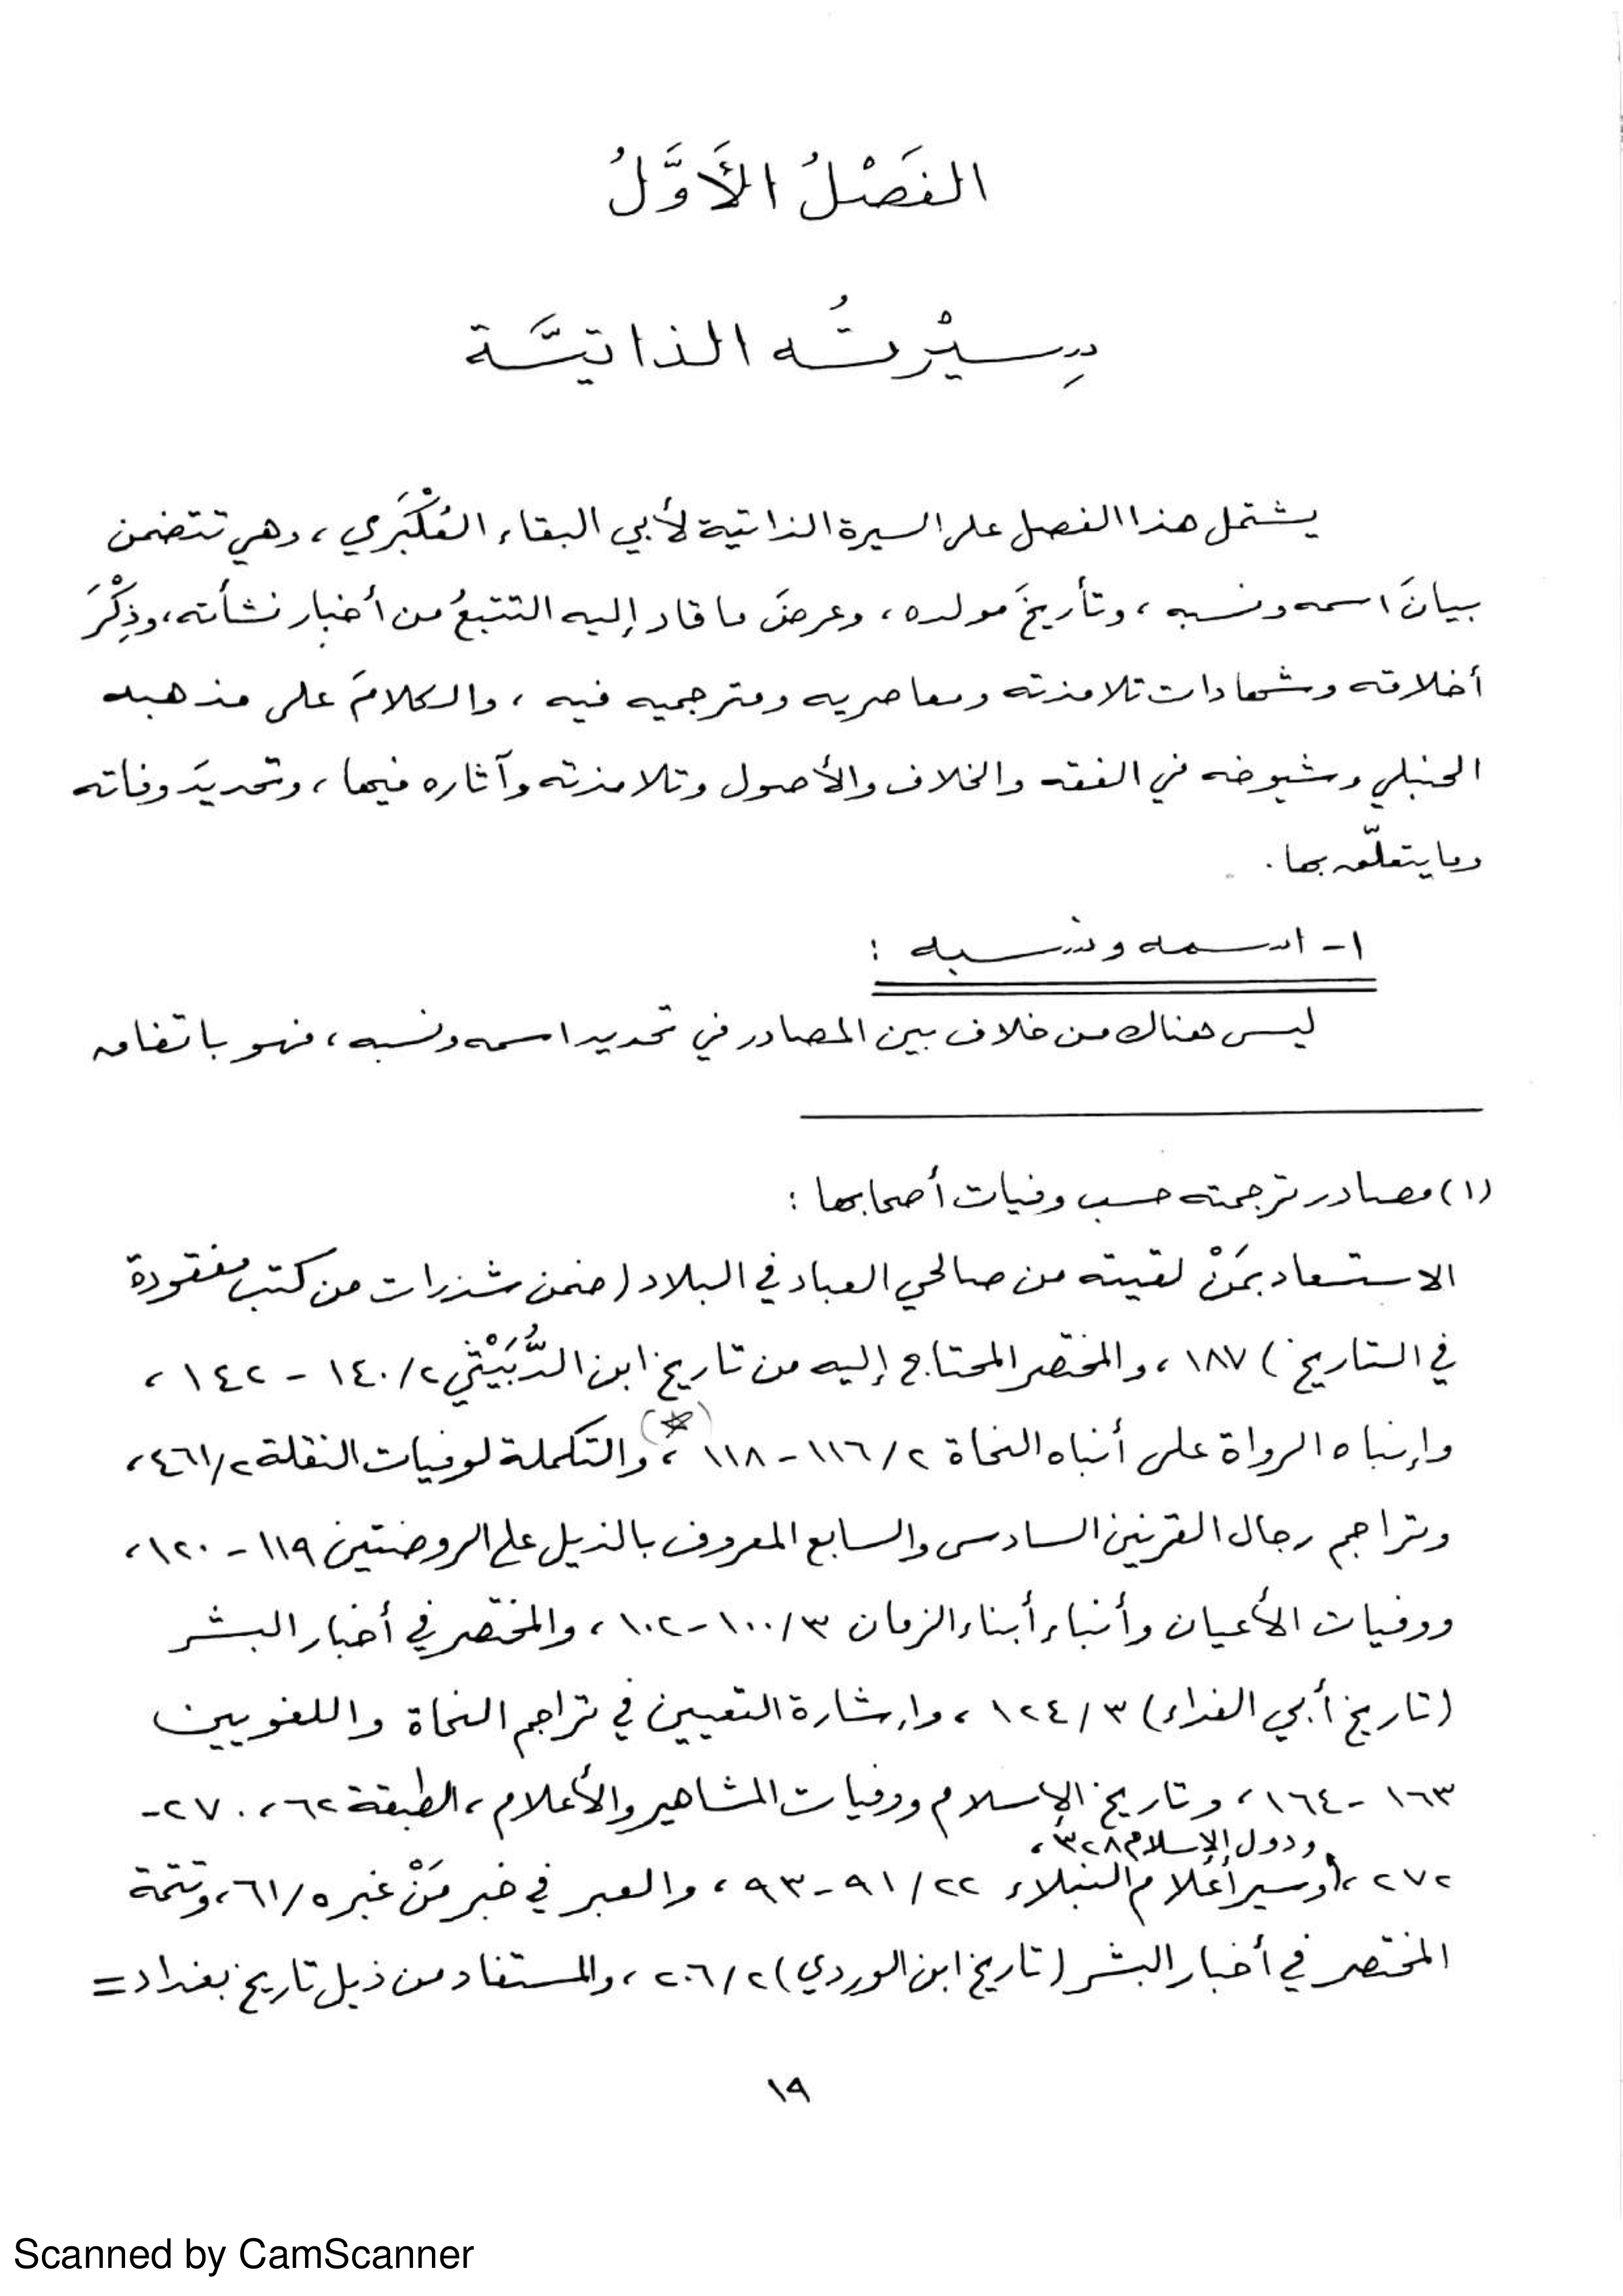 الفَصْلُ الأَوَّلُ
سِيْرتُه الذاتيَّة
يشتمل هذا الفصل على السيرة الذاتية لأبي البقاء العُكْبَري ، وهي تتضمن
بيانَ اسمه ونسبه ، وتأريخَ مولده ، وعرضَ ما قاد إليه التتبعُ من أخبار نشأته ، وذِكْرَ
أخلاقه وشهادات تلامذته ومعاصريه ومترجميه فيه ، والكلامَ على مذهبه
الحنبلي وشيوخه في الفقه والخلاف والأصول وتلامذته وآثاره فيها ، وتحديدَ وفاته
وما يتعلّق بها .
١- اسمه ونسبه :
ليس هناك من خلاف بين المصادر في تحديد اسمه ونسبه ، فهو باتفاق
(١) مصادر ترجمته حسب وفيات أصحابها :
الاستسعاد بمَنْ لقيته من صالحي العباد في البلاد (ضمن شذرات من كتب مفقودة
في التاريخ) ١٨٧ ، والمختصر المحتاج إليه من تاريخ ابن الدُّبَيْثي ٢/ ١٤٠ - ١٤٢ ،
وإنباه الرواة على أنباه النحاة ٢/ ١١٦ - ١١٨ (*) ، والتكملة لوفيات النقلة ٢/ ٤٦١ ،
وتراجم رجال القرنين السادس والسابع المعروف بالذيل على الروضتين ١١٩ - ١٢٠ ،
ووفيات الأعيان وأنباء أبناء الزمان ٣/ ١٠٠ - ١٠٢ ، والمختصر في أخبار البشر
(تاريخ أبي الفداء) ٣/ ١٢٤ ، وإشارة التعيين في تراجم النحاة واللغويين
١٦٣ - ١٦٤ ، وتاريخ الإسلام ووفيات المشاهير والأعلام ، الطبقة ٦٢ ، ٢٧٠ -
ودول الإسلام ٣٢٨ ،
٢٧٢ ، وسير أعلام النبلاء ٢٢/ ٩١ - ٩٣ ، والعبر في خبر مَنْ غبر ٥/ ٦١ ، وتتمة
المختصر في أخبار البشر (تاريخ ابن الوردي) ٢/ ٢٠٦ ، والمستفاد من ذيل تاريخ بغداد =
١٩
Scanned by CamScanner